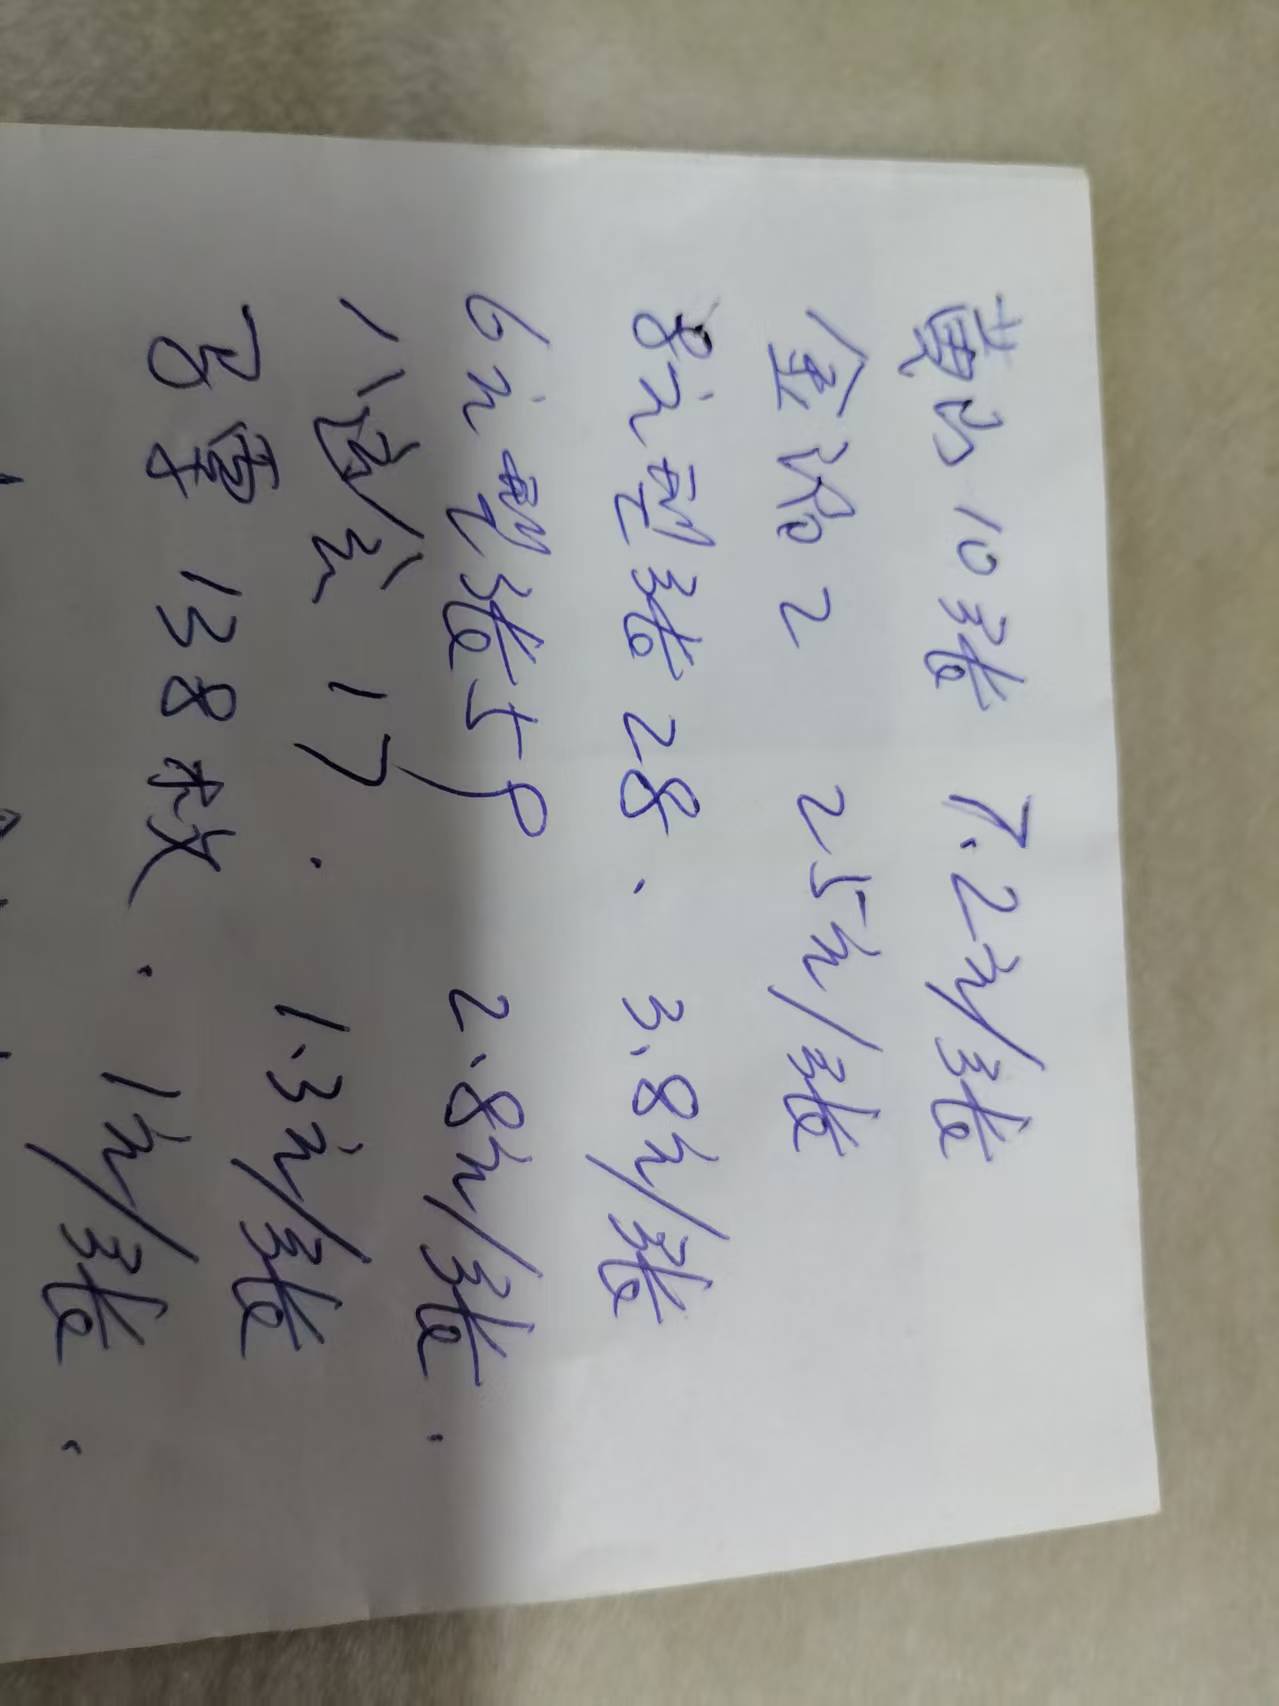 黄山10张 7.2元/张
金银2 25元/张
8元型张28. 3.8元/张
6元型张58 2.8元/张.
小型张17. 1.3元/张
138枚. 1元/张.